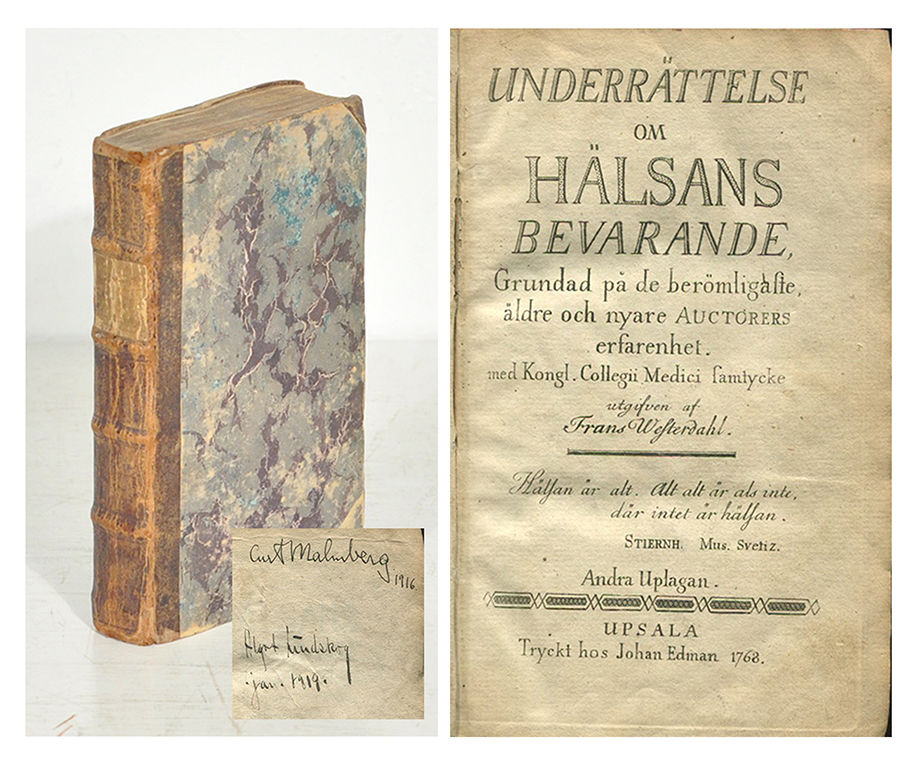 Curt Malmberg
1916
Lundskog
jan. 1919.
UNDERRÄTTELSE
OM
HÄLSANS
BEVARANDE,
Grundad på de berömligaſte,
äldre och nyare AUCTORERS
erfarenhet.
med Kongl. Collegii Medici ſamtycke
utgifven af
Frans Weſterdahl.
Hälſan är alt. Alt alt är als inte,
där intet är hälſan.
STIERNH. Mus. Svetiz.
Andra Uplagan.
UPSALA
Tryckt hos Johan Edman 1768.